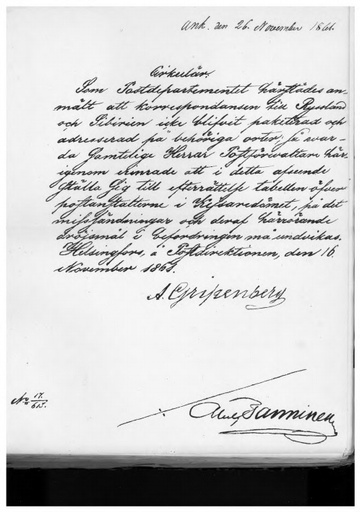 Ank. den 26. November 1861.
Cirkulär.
Som Postdepartementet härstädes an-
mält att korrespondansen till Ryssland
och Sibirien icke blifvit paketerad och
adresserad på behöriga orter, så varda
Samtelige Herrar Postförvaltare här-
igenom erinrade att i detta afseende
ställa sig till efterrättelse tabellen öfver
postanstalterne i Kejsaredömet, på det
misssändningar och deraf härrörande
dröjsmål i befordringen må undvikas.
Helsingfors, å Postdirektionen, den 16.
November 1861.
A. Gripenberg
No 17.
Banninen